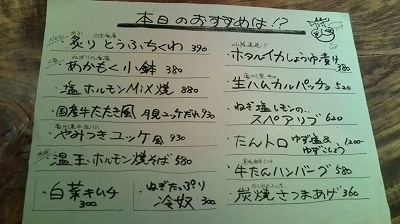 本日のおすすめは!?
炙り とうふちくわ 390
あかもく小鉢 380
・塩ホルモンMIX焼 880
・国産牛たたき風 月見ユッケだれ 930
やみつきユッケ風 930
温玉ホルモン焼そば 580
・白菜キムチ 300
・ねぎたっぷり 冷奴 300
ホタルイカしょうゆ漬け 380
生ハムカルパッチョ 520
ねぎ塩レモンの
スペアリブ 620
たんトロ ゆず塩&ゆずこしょう 1200
牛たんハンバーグ 580
炭焼さつまあげ 360